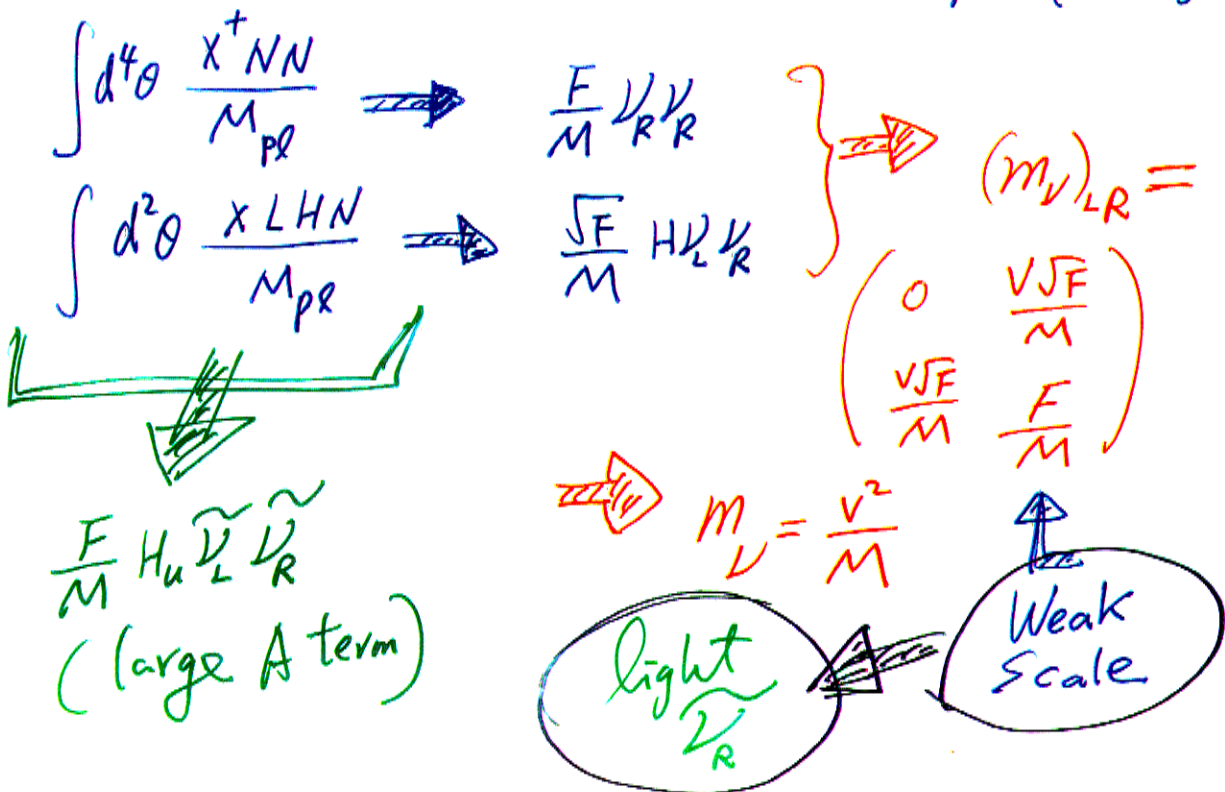 ∫d⁴θ X⁺NN/M_pl ⇒ F/M ν_R ν_R
∫d²θ X L H N/M_pl ⇒ √F/M H ν_L ν_R
} ⇒ (m_ν)_LR =
( 0 v√F/M
v√F/M F/M )
⇒ m_ν = v²/M
F/M H_u ν̃_L ν̃_R
(large A term)
light
ν̃_R
Weak
Scale